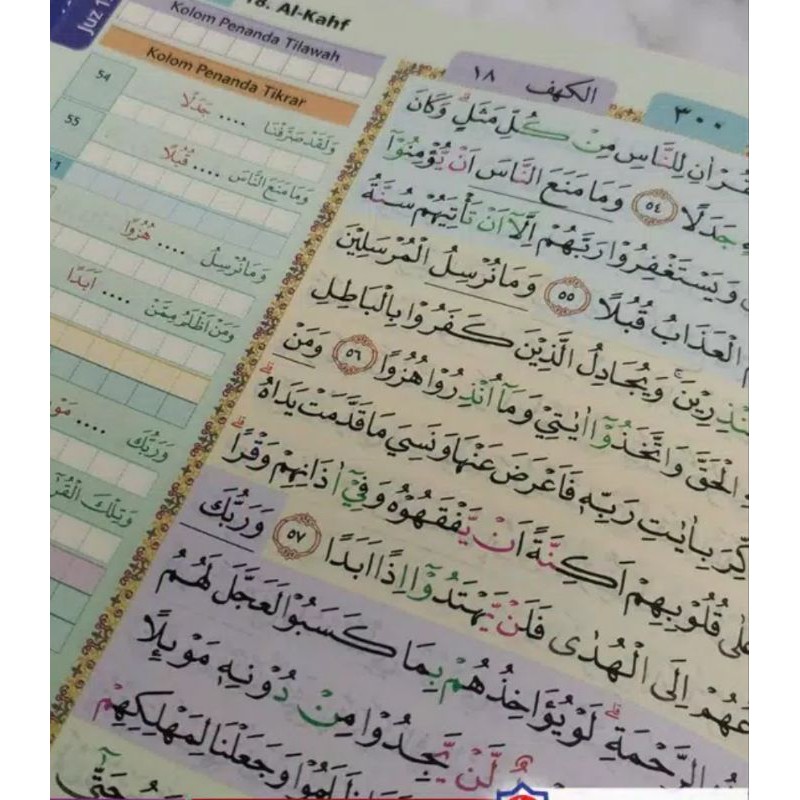 18. Al-Kahf
Kolom Penanda Tilawah
Kolom Penanda Tikrar
54
وَلَقَدْ صَرَّفْنَا .... جَدَلًا
55
وَمَا مَنَعَ النَّاسَ .... قُبُلًا
وَمَا نُرْسِلُ .... هُزُوًا
وَمَنْ اَظْلَمُ مِمَّنْ .... اَبَدًا
وَرَبُّكَ ....
وَتِلْكَ
٣٠٠
الكهف ١٨
لِلنَّاسِ مِنْ كُلِّ مَثَلٍۗ وَكَانَ
جَدَلًا ٥٤ وَمَا مَنَعَ النَّاسَ اَنْ يُّؤْمِنُوْٓا
وَيَسْتَغْفِرُوْا رَبَّهُمْ اِلَّآ اَنْ تَأْتِيَهُمْ سُنَّةُ
الْعَذَابُ قُبُلًا ٥٥ وَمَا نُرْسِلُ الْمُرْسَلِيْنَ
وَيُجَادِلُ الَّذِيْنَ كَفَرُوْا بِالْبَاطِلِ
الْحَقَّ وَاتَّخَذُوْٓا اٰيٰتِيْ وَمَآ اُنْذِرُوْا هُزُوًا ٥٦ وَمَنْ
بِاٰيٰتِ رَبِّهٖ فَاَعْرَضَ عَنْهَا وَنَسِيَ مَا قَدَّمَتْ يَدَاهُۗ
قُلُوْبِهِمْ اَكِنَّةً اَنْ يَّفْقَهُوْهُ وَفِيْٓ اٰذَانِهِمْ وَقْرًاۗ
اِلَى الْهُدٰى فَلَنْ يَّهْتَدُوْٓا اِذًا اَبَدًا ٥٧ وَرَبُّكَ
الرَّحْمَةِۗ لَوْ يُؤَاخِذُهُمْ بِمَا كَسَبُوْا لَعَجَّلَ لَهُمُ
لَّنْ يَّجِدُوْا مِنْ دُوْنِهٖ مَوْىِٕلًا
وَجَعَلْنَا لِمَهْلِكِهِمْ